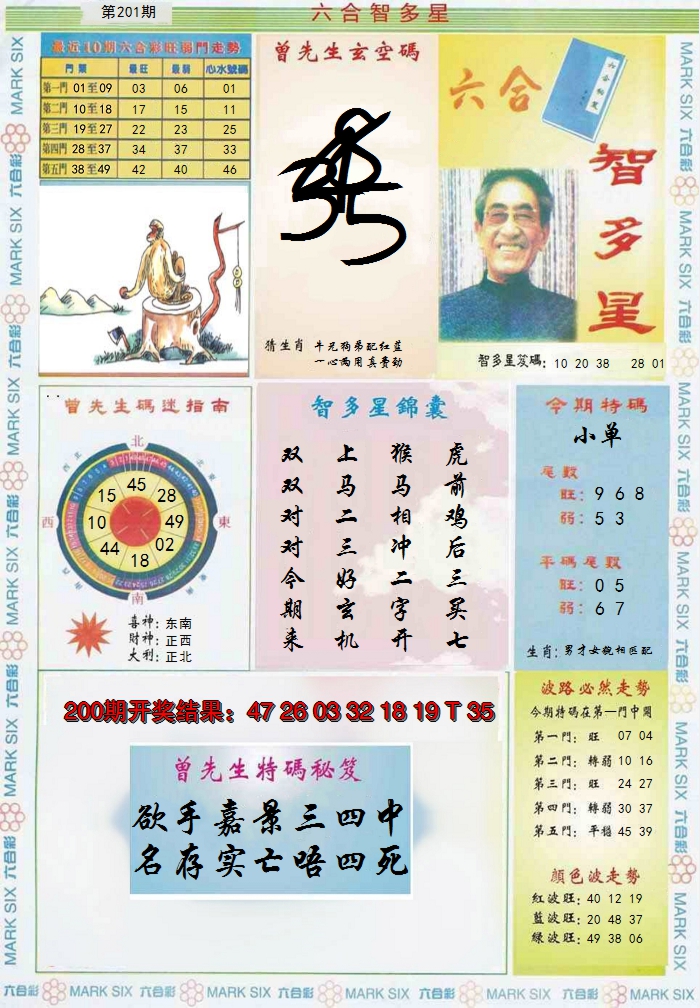 第201期
六合智多星
最近10期六合彩旺弱門走勢
門類 最旺 最弱 心水號碼
第一門 01至09 03 06 01
第二門 10至18 17 15 11
第三門 19至27 22 23 25
第四門 28至37 34 37 33
第五門 38至49 42 40 46
曾先生玄空碼
猜生肖 牛兄狗弟配红蓝
一心两用真费劲
六合
智多星
智多星笈碼: 10 20 38 28 01
曾先生碼迷指南
北
東
南
西
45
28
49
02
18
44
10
15
喜神: 东南
财神: 正西
大利: 正北
智多星錦囊
双双对对今期来
上马二三好玄机
猴马相冲二字开
虎前鸡后三买七
今期特碼
小单
尾數
旺: 9 6 8
弱: 5 3
平碼尾數
旺: 0 5
弱: 6 7
生肖: 男才女貌相匹配
200期开奖结果: 47 26 03 32 18 19 T 35
曾先生特碼秘笈
欲手嘉景三四中
名存实亡唔四死
波路必然走勢
今期特碼在第一門中開
第一門: 旺 07 04
第二門: 轉弱 10 16
第三門: 旺 24 27
第四門: 轉弱 30 37
第五門: 平穩 45 39
顏色波走勢
紅波旺: 40 12 19
藍波旺: 20 48 37
綠波旺: 49 38 06
MARK SIX 六合彩 MARK SIX 六合彩 MARK SIX 六合彩 MARK SIX 六合彩 MARK SIX